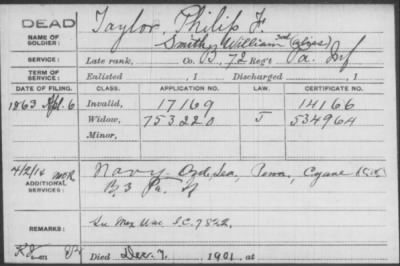 DEAD
NAME OF SOLDIER: Taylor, Philip F.
Smith, William 3rd (alias)
SERVICE: Late rank, Co. B, 72 Reg't Pa. Inf
TERM OF SERVICE: Enlisted , 1 Discharged , 1
DATE OF FILING. CLASS. APPLICATION NO. LAW. CERTIFICATE NO.
1863 Apl. 6 Invalid, 17169 14166
Widow, 753220 J 534964
Minor,
4/2/14
ADDITIONAL SERVICES: Navy. Ord. Sea, Penn, Cyane
B. 3 Pa.
REMARKS: Su Mex War S.C. 7822.
Died Dec. 7, 1901, at